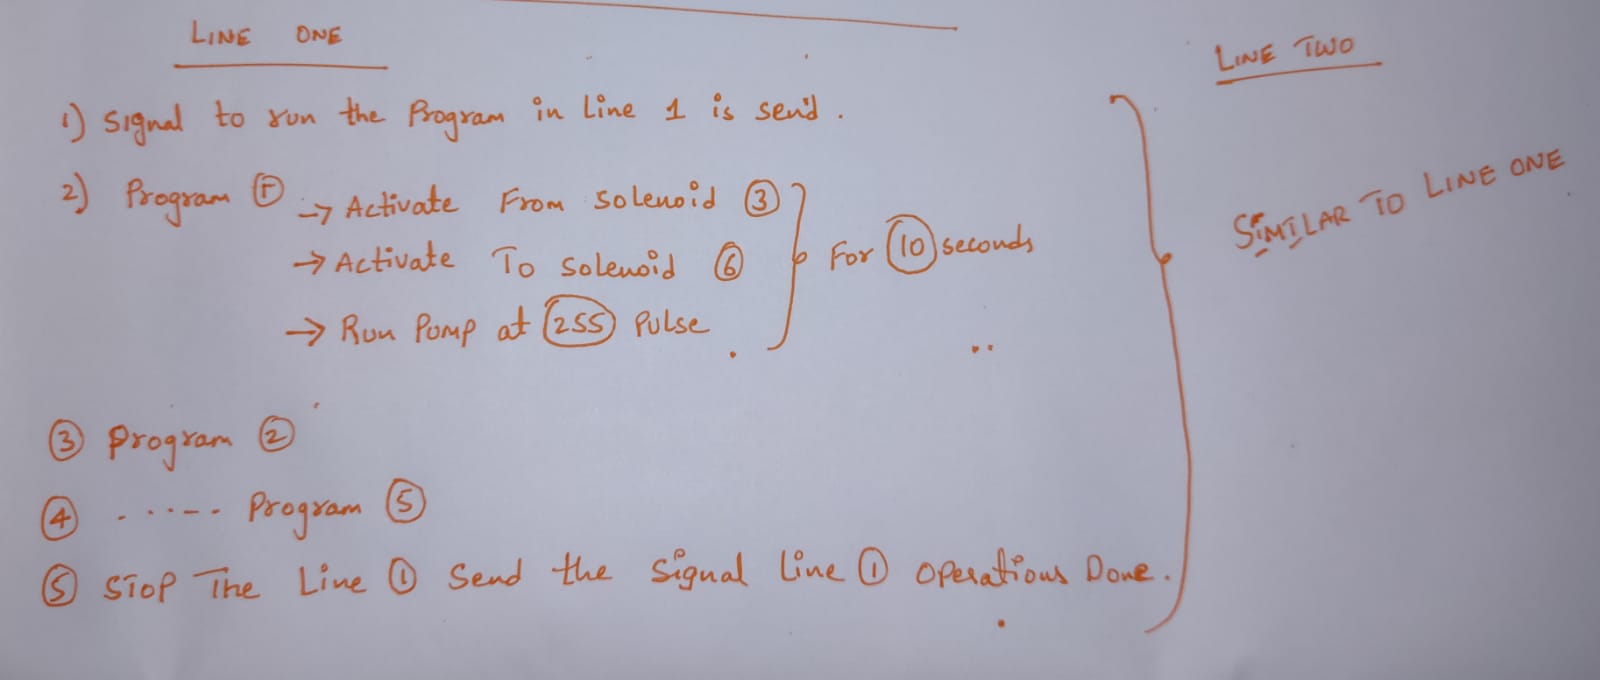 LINE ONE
1) Signal to run the Program in Line 1 is send.
2) Program → Activate From Solenoid ③
→ Activate To Solenoid ⑥
→ Run Pump at 255 Pulse
For 10 seconds
③ Program ②
④ ..... Program ⑤
⑤ STOP The Line ① Send the Signal Line ① Operations Done.
LINE TWO
SIMILAR TO LINE ONE